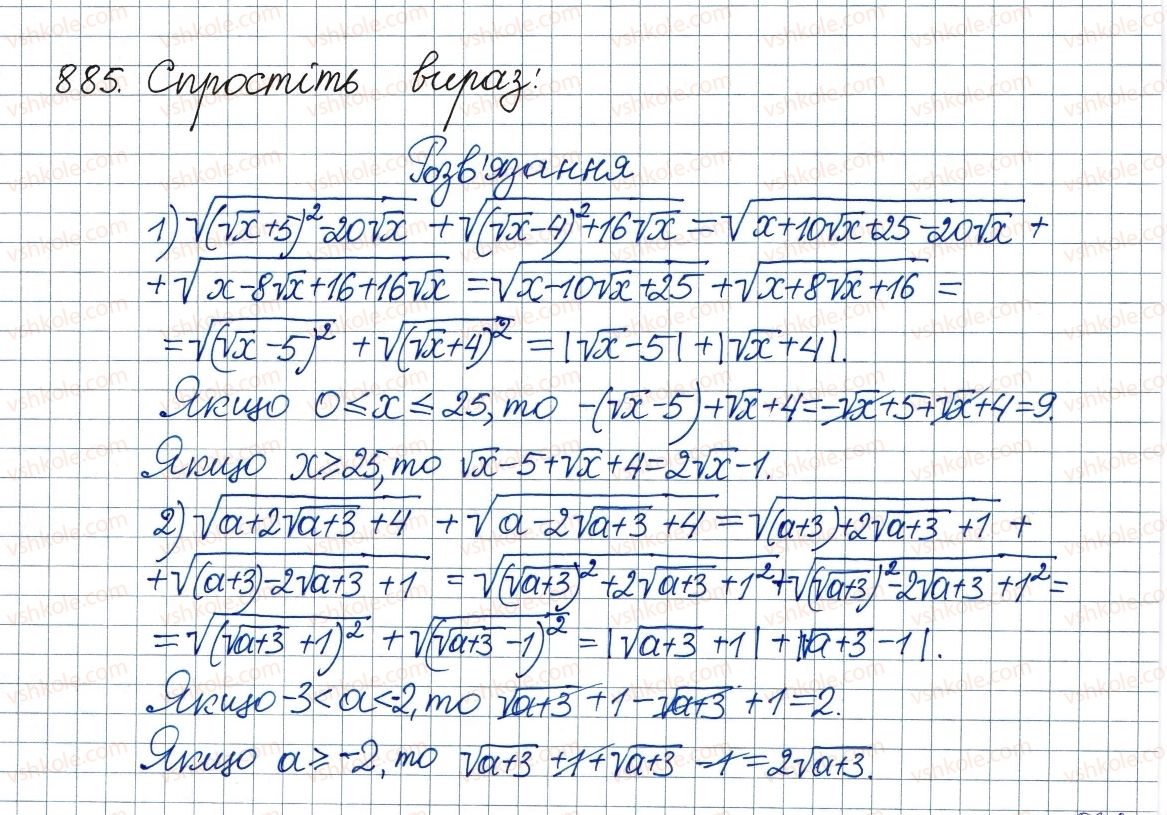 885. Спростіть вираз:
Розв'язання
1) √((√x+5)²-20√x) + √((√x-4)²+16√x) = √(x+10√x+25-20√x) +
+√(x-8√x+16+16√x) = √(x-10√x+25) + √(x+8√x+16) =
= √((√x-5)²) + √((√x+4)²) = |√x-5|+|√x+4|.
Якщо 0≤x≤25, то -(√x-5)+√x+4=-√x+5+√x+4=9.
Якщо x≥25, то √x-5+√x+4=2√x-1.
2) √(a+2√(a+3)+4) + √(a-2√(a+3)+4) = √((a+3)+2√(a+3)+1) +
+√((a+3)-2√(a+3)+1) = √((√(a+3))²+2√(a+3)+1²)+√((√(a+3))²-2√(a+3)+1²)=
= √((√(a+3)+1)²) + √((√(a+3)-1)²) = |√(a+3)+1|+|√(a+3)-1|.
Якщо -3<a<-2, то √(a+3)+1-√(a+3)+1=2.
Якщо a≥-2, то √(a+3)+1+√(a+3)-1=2√(a+3).